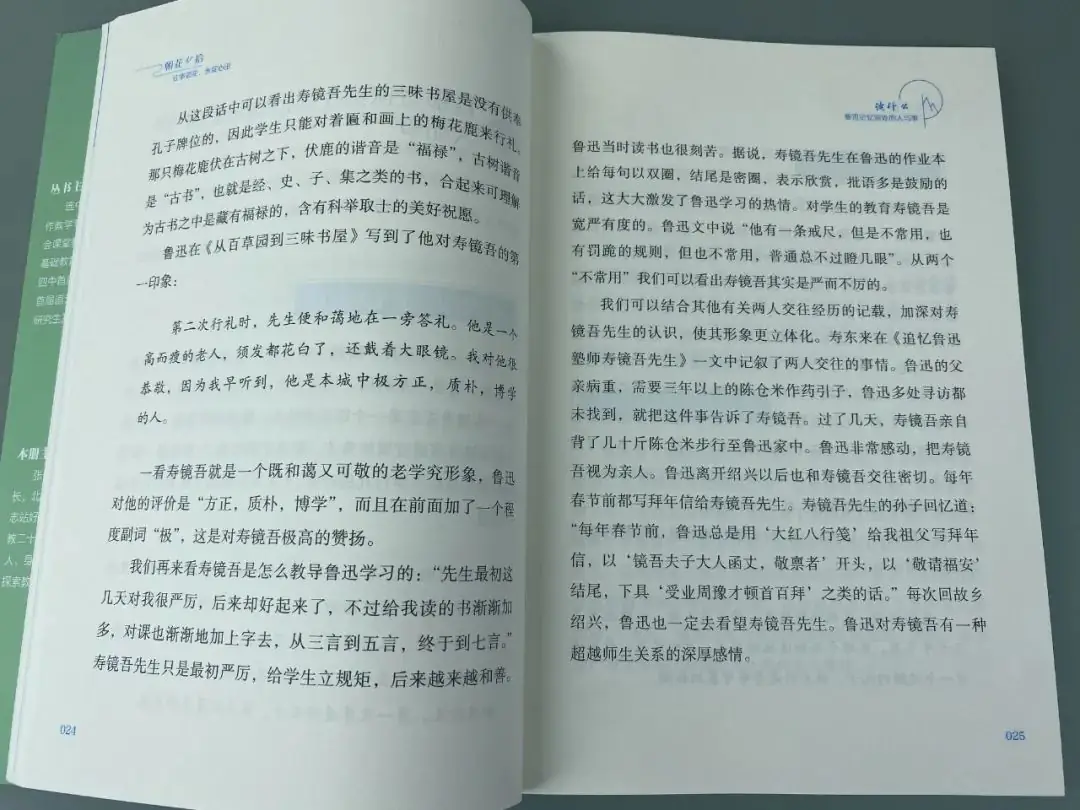 丛书主
本册主
张
长，北
志站好
教二十
探索教
作教学
会课堂
基础教育
四中首
首届语
研究生
朝花夕拾
从这段话中可以看出寿镜吾先生的三味书屋是没有供奉
孔子牌位的，因此学生只能对着匾和画上的梅花鹿来行礼。
那只梅花鹿伏在古树之下，伏鹿的谐音是“福禄”，古树谐音
是“古书”，也就是经、史、子、集之类的书，合起来可理解
为古书之中是藏有福禄的，含有科举取士的美好祝愿。
鲁迅在《从百草园到三味书屋》写到了他对寿镜吾的第
一印象：
第二次行礼时，先生便和蔼地在一旁答礼。他是一个
高而瘦的老人，须发都花白了，还戴着大眼镜。我对他很
恭敬，因为我早听到，他是本城中极方正，质朴，博学
的人。
一看寿镜吾就是一个既和蔼又可敬的老学究形象，鲁迅
对他的评价是“方正，质朴，博学”，而且在前面加了一个程
度副词“极”，这是对寿镜吾极高的赞扬。
我们再来看寿镜吾是怎么教导鲁迅学习的：“先生最初这
几天对我很严厉，后来却好起来了，不过给我读的书渐渐加
多，对课也渐渐地加上字去，从三言到五言，终于到七言。”
寿镜吾先生只是最初严厉，给学生立规矩，后来越来越和善。
024
读什么
鲁迅记忆深处的人与事
鲁迅当时读书也很刻苦。据说，寿镜吾先生在鲁迅的作业本
上给每句以双圈，结尾是密圈，表示欣赏，批语多是鼓励的
话，这大大激发了鲁迅学习的热情。对学生的教育寿镜吾是
宽严有度的。鲁迅文中说“他有一条戒尺，但是不常用，也
有罚跪的规则，但也不常用，普通总不过瞪几眼”。从两个
“不常用”我们可以看出寿镜吾其实是严而不厉的。
我们可以结合其他有关两人交往经历的记载，加深对寿
镜吾先生的认识，使其形象更立体化。寿东来在《追忆鲁迅
塾师寿镜吾先生》一文中记叙了两人交往的事情。鲁迅的父
亲病重，需要三年以上的陈仓米作药引子，鲁迅多处寻访都
未找到，就把这件事告诉了寿镜吾。过了几天，寿镜吾亲自
背了几十斤陈仓米步行至鲁迅家中。鲁迅非常感动，把寿镜
吾视为亲人。鲁迅离开绍兴以后也和寿镜吾交往密切。每年
春节前都写拜年信给寿镜吾先生。寿镜吾先生的孙子回忆道：
“每年春节前，鲁迅总是用‘大红八行笺’给我祖父写拜年
信，以‘镜吾夫子大人函丈，敬禀者’开头，以‘敬请福安’
结尾，下具‘受业周豫才顿首百拜’之类的话。”每次回故乡
绍兴，鲁迅也一定去看望寿镜吾先生。鲁迅对寿镜吾有一种
超越师生关系的深厚感情。
025